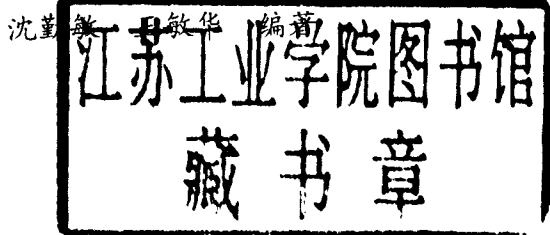 沈勤敏 敏华 编著
江苏工业学院图书馆
藏书章